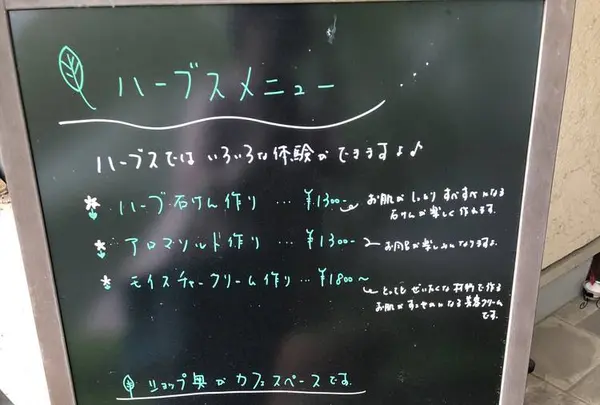 ハーブスメニュー
ハーブスではいろいろな体験ができますよ♪
ハーブ石けん作り … ¥1300〜
お肌がしっとりすべすべになる
石けんが楽しく作れます。
アロマソルト作り … ¥1300〜
お風呂が楽しみになりますよ。
モイスチャークリーム作り … ¥1800〜
とってもぜいたくな材料で作る
お肌がすっぴんになる美容クリーム
です。
ショップ奥がカフェスペースです。